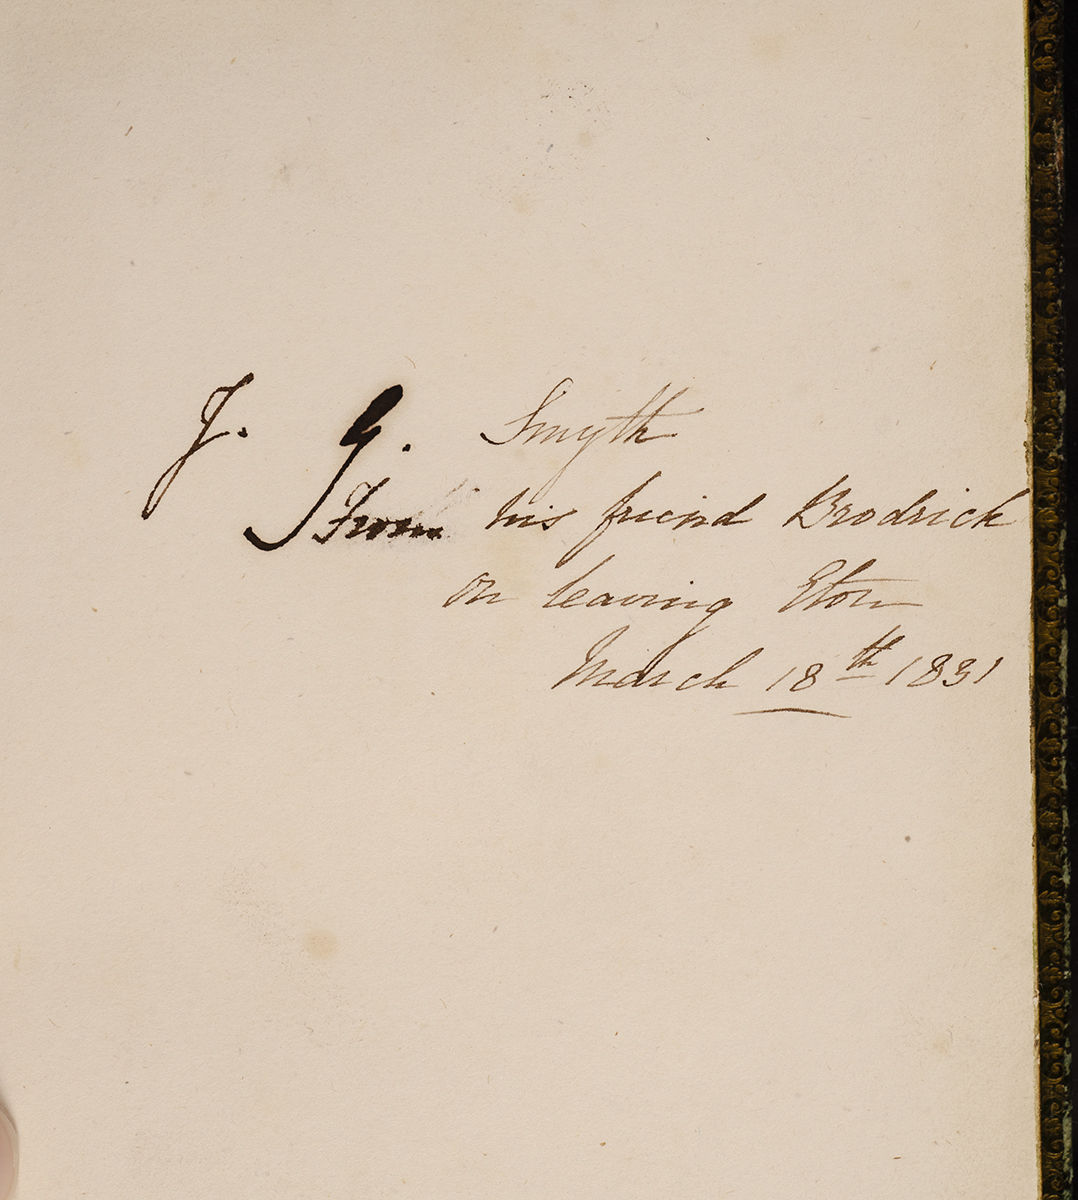 J. G. Smyth
From his friend Brodrick
on leaving Eton
March 18th 1831